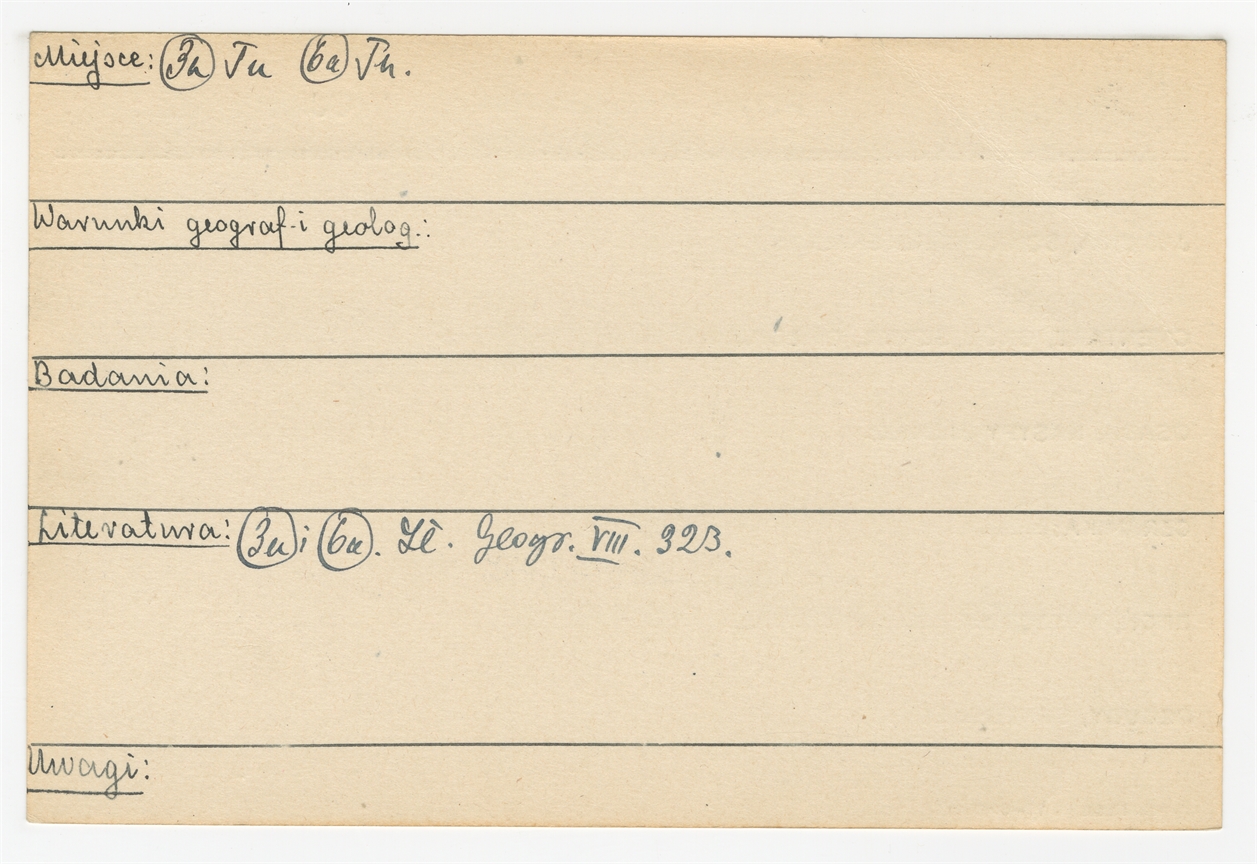 Miejsce: 3a Tu 6a Tu.
Warunki geograf. i geolog.:
Badania:
Literatura: 3a i 6a. Sł. Geogr. VIII. 323.
Uwagi: